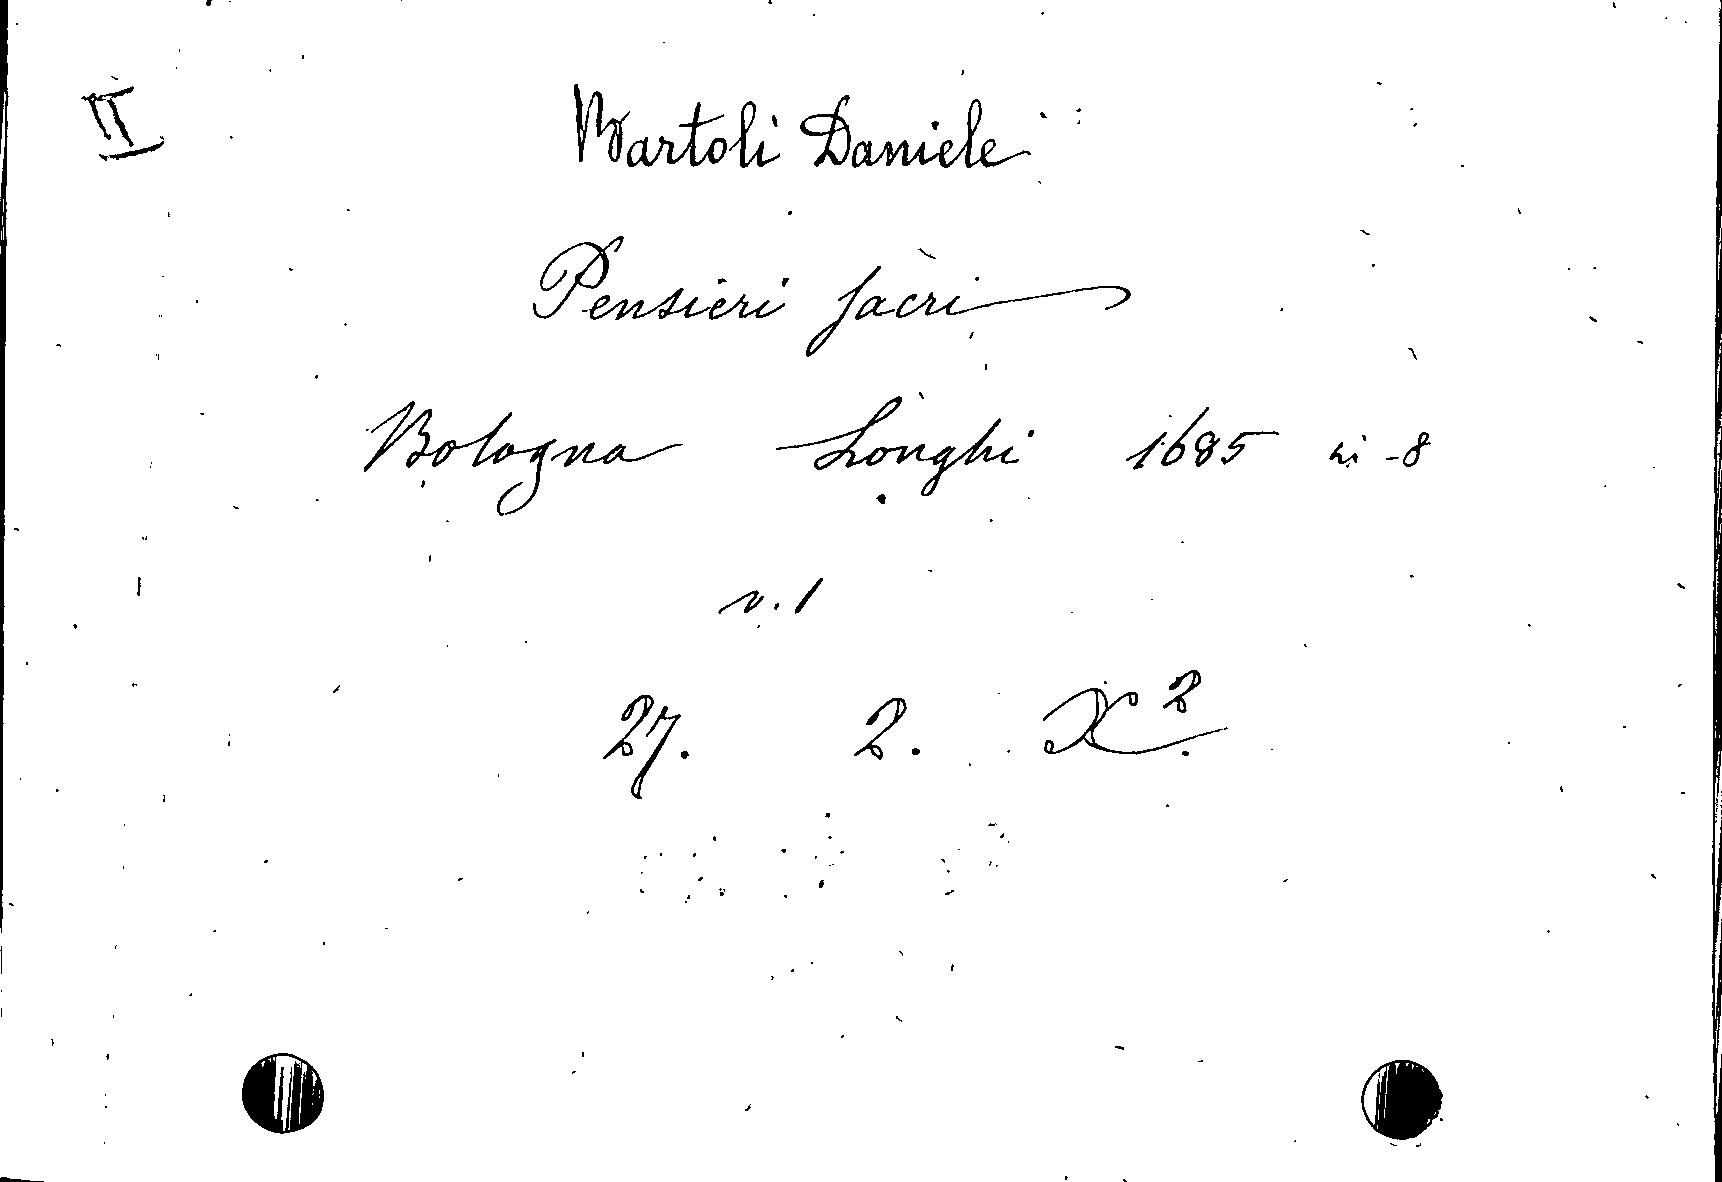 II
Bartoli Daniele
Pensieri sacri
Bologna Longhi 1685 in-8
v. 1
27. 2. X².